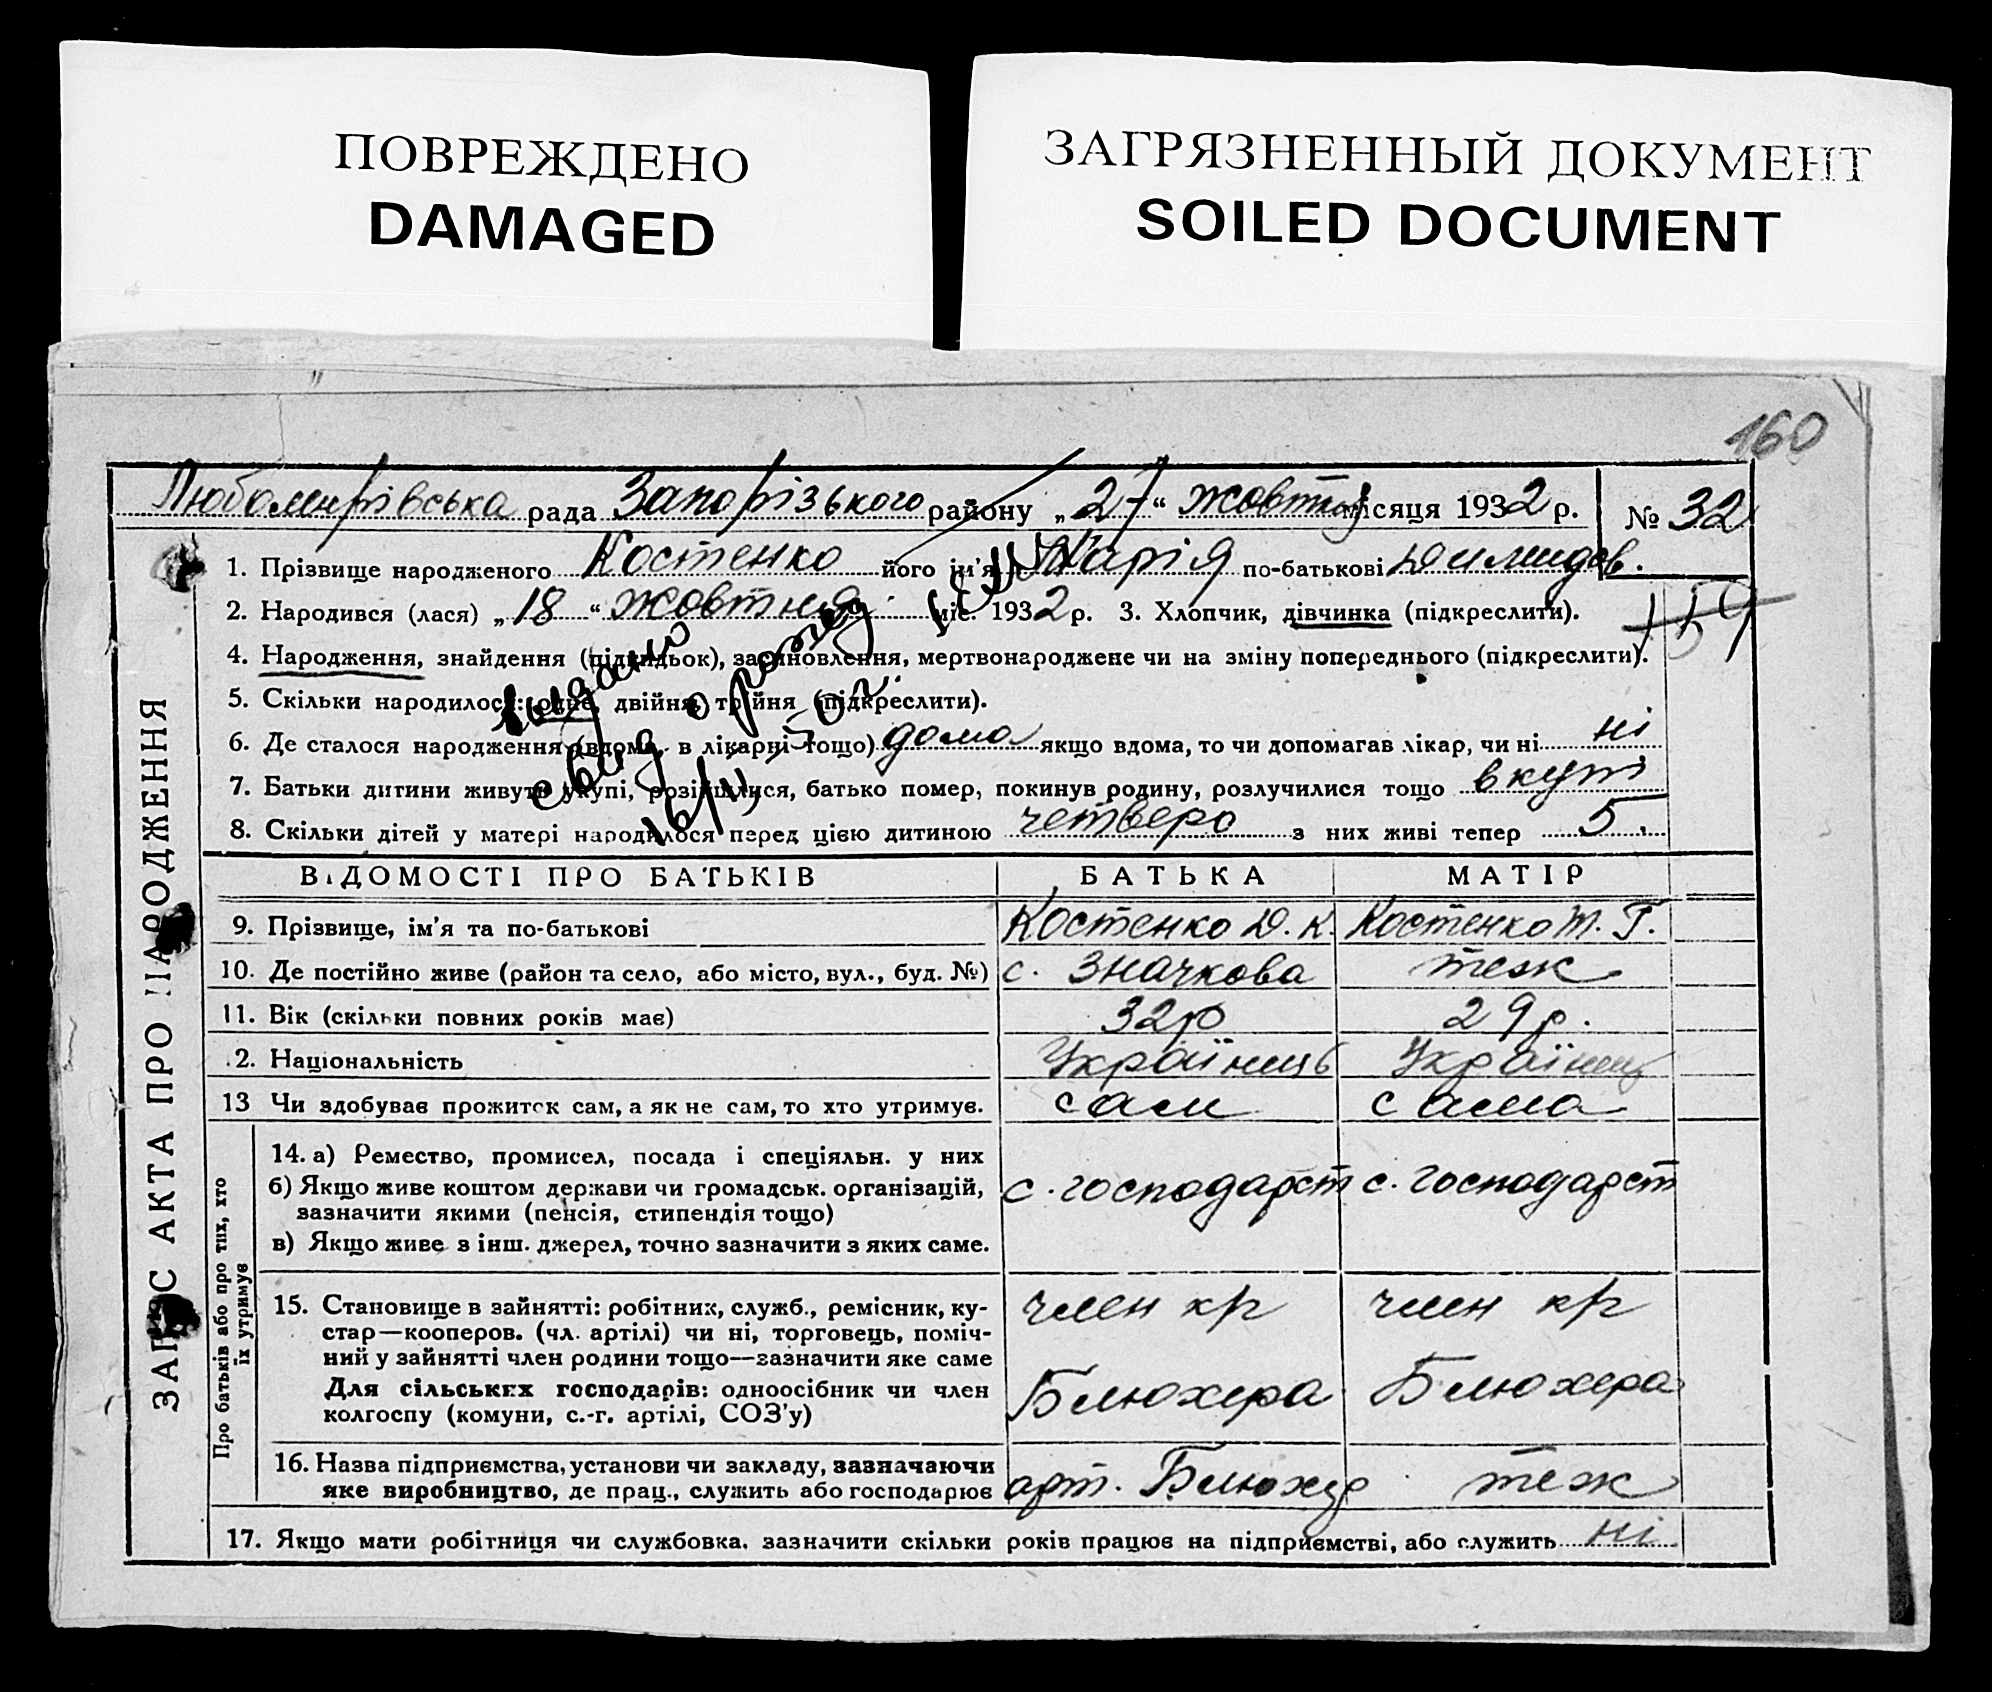 ПОВРЕЖДЕНО
DAMAGED
ЗАГРЯЗНЕННЫЙ ДОКУМЕНТ
SOILED DOCUMENT
160
Любомирівська рада Запорізького району „27“ жовтня місяця 1932 р. № 32
1. Прізвище народженого Костенко його ім'я Марія по-батькові
2. Народився (лася) „18“ жовтня міс. 1932 р. 3. Хлопчик, дівчинка (підкреслити).
159
4. Народження, знайдення (підкидьок), засиновлення, мертвонароджене чи на зміну попереднього (підкреслити).
5. Скільки народилося: одне, двійня, трійня (підкреслити).
6. Де сталося народження (вдома, в лікарні тощо) дома якщо вдома, то чи допомагав лікар, чи ні ні
7. Батьки дитини живуть укупі, розійшлися, батько помер, покинув родину, розлучилися тощо вкупі
8. Скільки дітей у матері народилося перед цією дитиною четверо з них живі тепер 5.
выдано
свид о рожд
16/II
ЗАПИС АКТА ПРО НАРОДЖЕННЯ
ВІДОМОСТІ ПРО БАТЬКІВ БАТЬКА МАТІР
9. Прізвище, ім'я та по-батькові Костенко Д. К. Костенко Т. Г.
10. Де постійно живе (район та село, або місто, вул., буд. №) с. Значкова теж
11. Вік (скільки повних років має) 32р 29р.
12. Національність Українець Українець
13 Чи здобуває прожиток сам, а як не сам, то хто утримує. сам сама
Про батьків або про тих, хто
їх утримує
14. а) Ремество, промисел, посада і спеціяльн. у них
б) Якщо живе коштом держави чи громадськ. організацій,
зазначити якими (пенсія, стипендія тощо)
с. господарст с. господарст
в) Якщо живе з інш. джерел, точно зазначити з яких саме.
15. Становище в зайнятті: робітник, служб., ремісник, ку-
стар—кооперов. (чл. артілі) чи ні, торговець, поміч-
ний у зайнятті член родини тощо—зазначити яке саме
Для сільських господарів: одноосібник чи член
колгоспу (комуни, с.-г. артілі, СОЗ'у)
член кр член кр
Блюхера Блюхера
16. Назва підприємства, установи чи закладу, зазначаючи
яке виробництво, де прац., служить або господарює
арт. Блюхер теж
17. Якщо мати робітниця чи службовка, зазначити скільки років працює на підприємстві, або служить ні